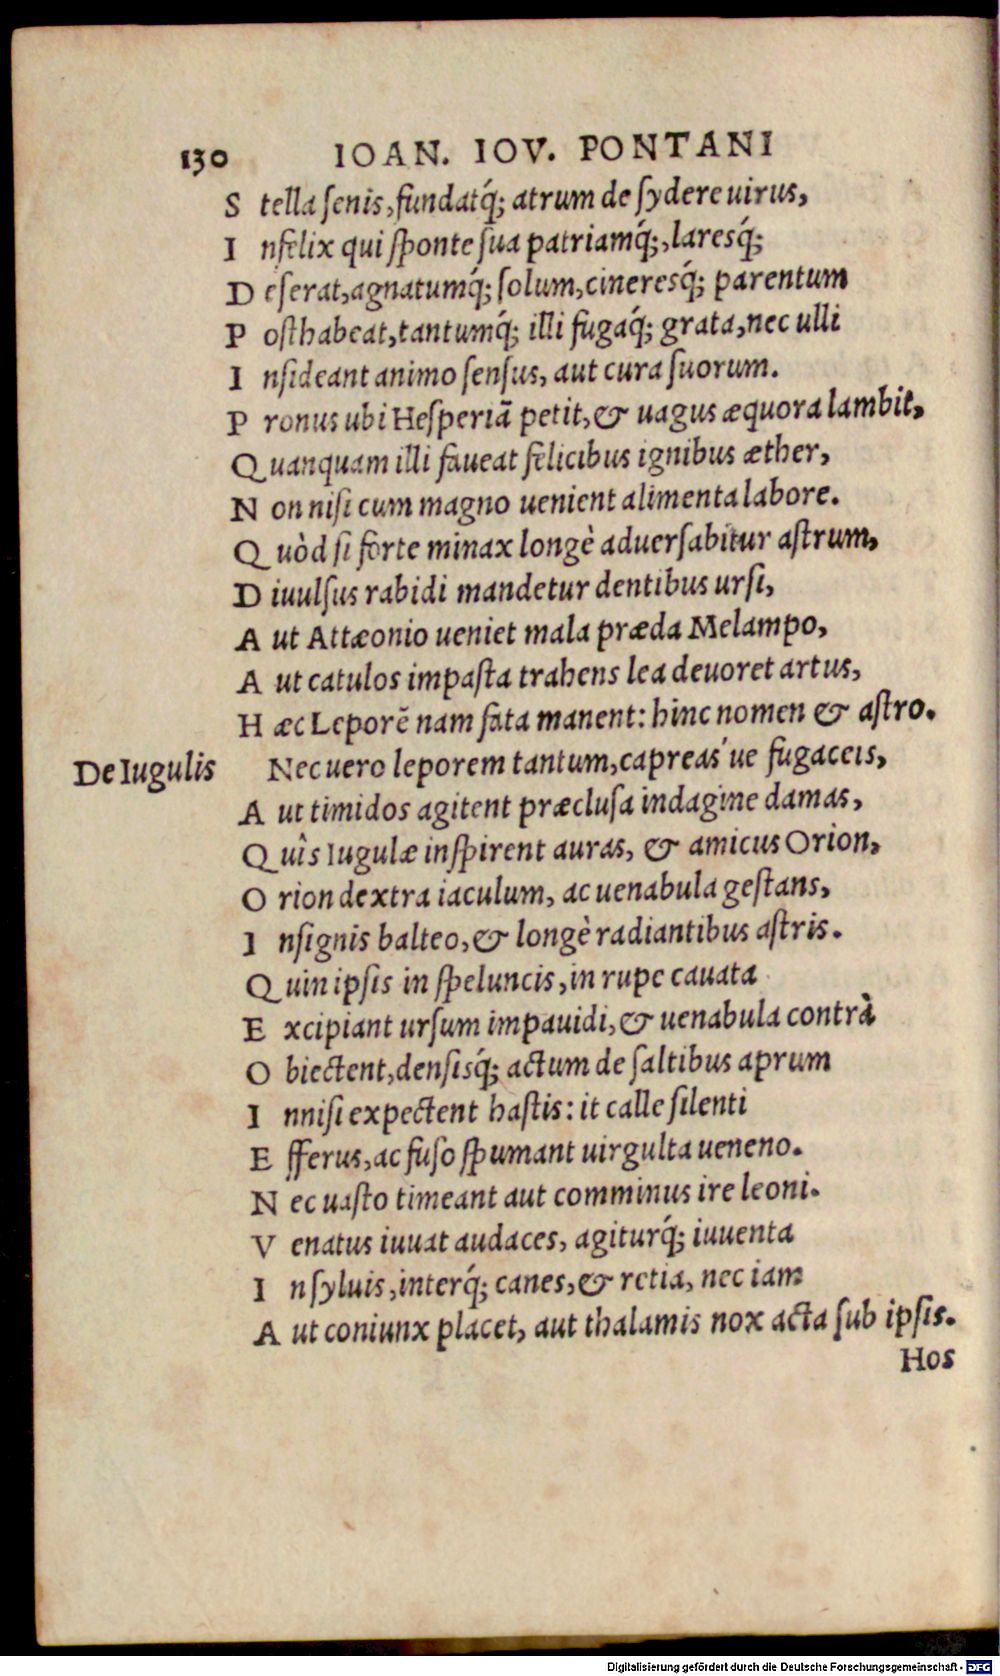 130 IOAN. IOV. PONTANI
S tella ſenis, fundatq́; atrum de ſydere uirus,
I nfelix qui ſponte ſua patriamq́;, laresq́;
D eſerat, agnatumq́; ſolum, cineresq́; parentum
P oſthabeat, tantumq́; illi fugaq́; grata, nec ulli
I nſideant animo ſenſus, aut cura ſuorum.
P ronus ubi Heſperiā petit, & uagus æquora lambit,
Q uanquam illi faueat felicibus ignibus æther,
N on niſi cum magno uenient alimenta labore.
Q uòd ſi forte minax longè aduerſabitur aſtrum,
D iuulſus rabidi mandetur dentibus urſi,
A ut Attæonio ueniet mala præda Melampo,
A ut catulos impaſta trahens lea deuoret artus,
H æc Leporē nam fata manent: hinc nomen & aſtro.
De Iugulis Nec uero leporem tantum, capreas´ue fugaceis,
A ut timidos agitent præcluſa indagine damas,
Q uîs Iugulæ inſpirent auras, & amicus Orion,
O rion dextra iaculum, ac uenabula geſtans,
I nſignis balteo, & longè radiantibus aſtris.
Q uin ipſis in ſpeluncis, in rupe cauata
E xcipiant urſum impauidi, & uenabula contrà
O biectent, denſisq́; actum de ſaltibus aprum
I nniſi expectent haſtis: it calle ſilenti
E fferus, ac fuſo ſpumant uirgulta ueneno.
N ec uaſto timeant aut comminus ire leoni.
V enatus iuuat audaces, agiturq́; iuuenta
I n ſyluis, interq́; canes, & retia, nec iam
A ut coniunx placet, aut thalamis nox acta ſub ipſis.
Hos
Digitalisierung gefördert durch die Deutsche Forschungsgemeinschaft - DFG